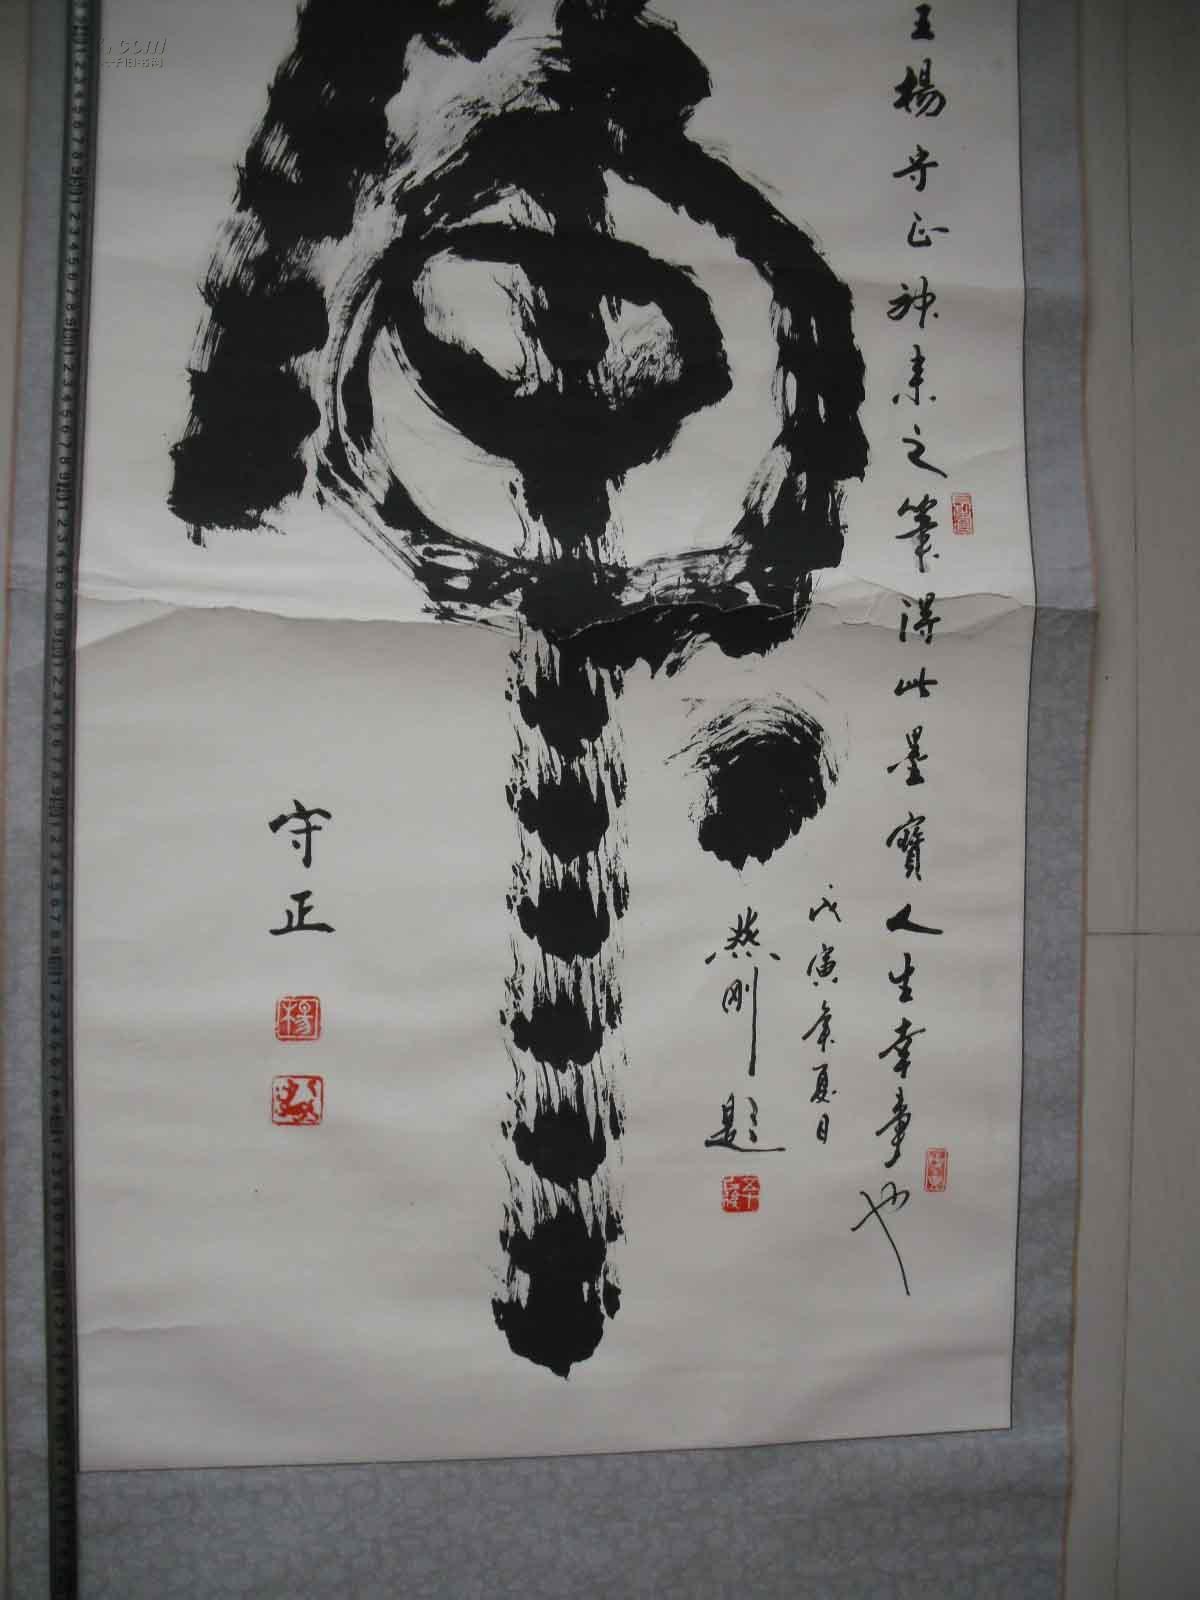 王楊守正神来之筆得此墨寶人生幸事也
戊寅年夏日
燕刚题
守正
楊